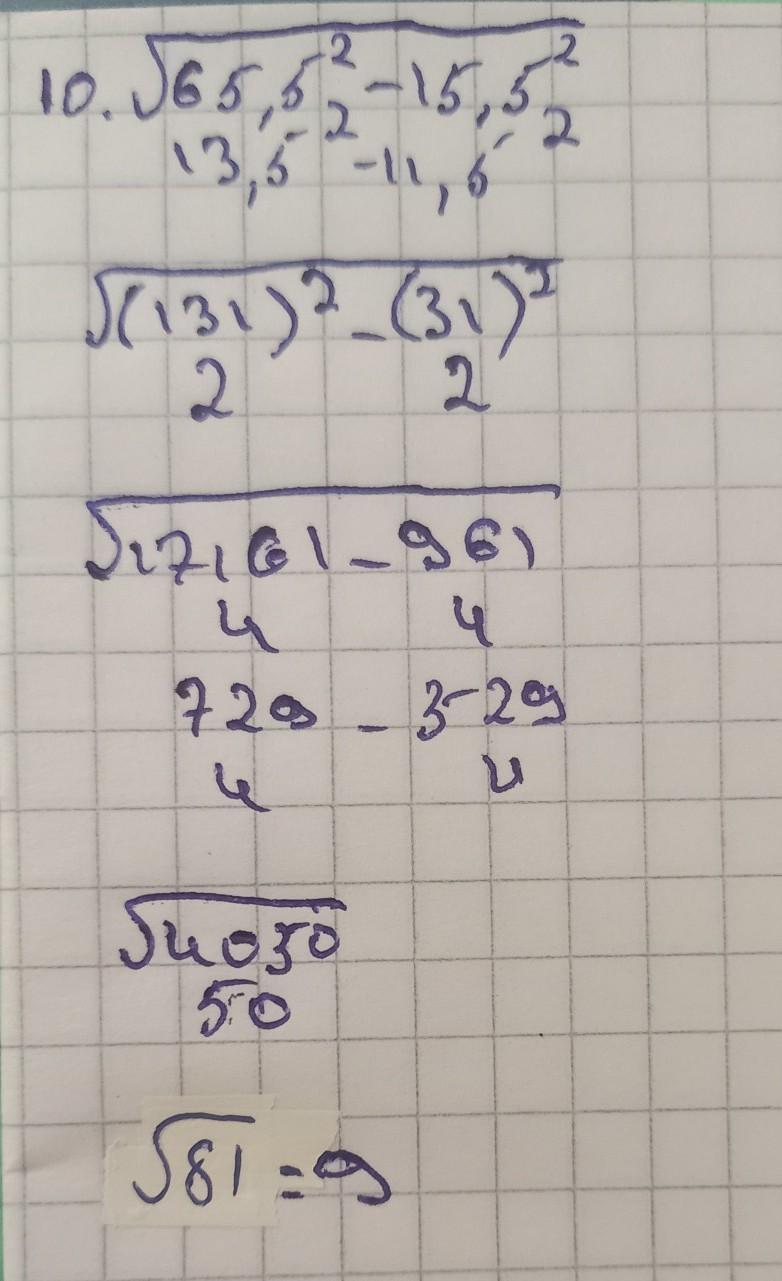 10. √65,5² - 15,5²
13,5² - 11,5²
√(131)² - (31)²
2 2
√17161 - 961
4 4
729 - 529
4 4
√4050
50
√81 = 9